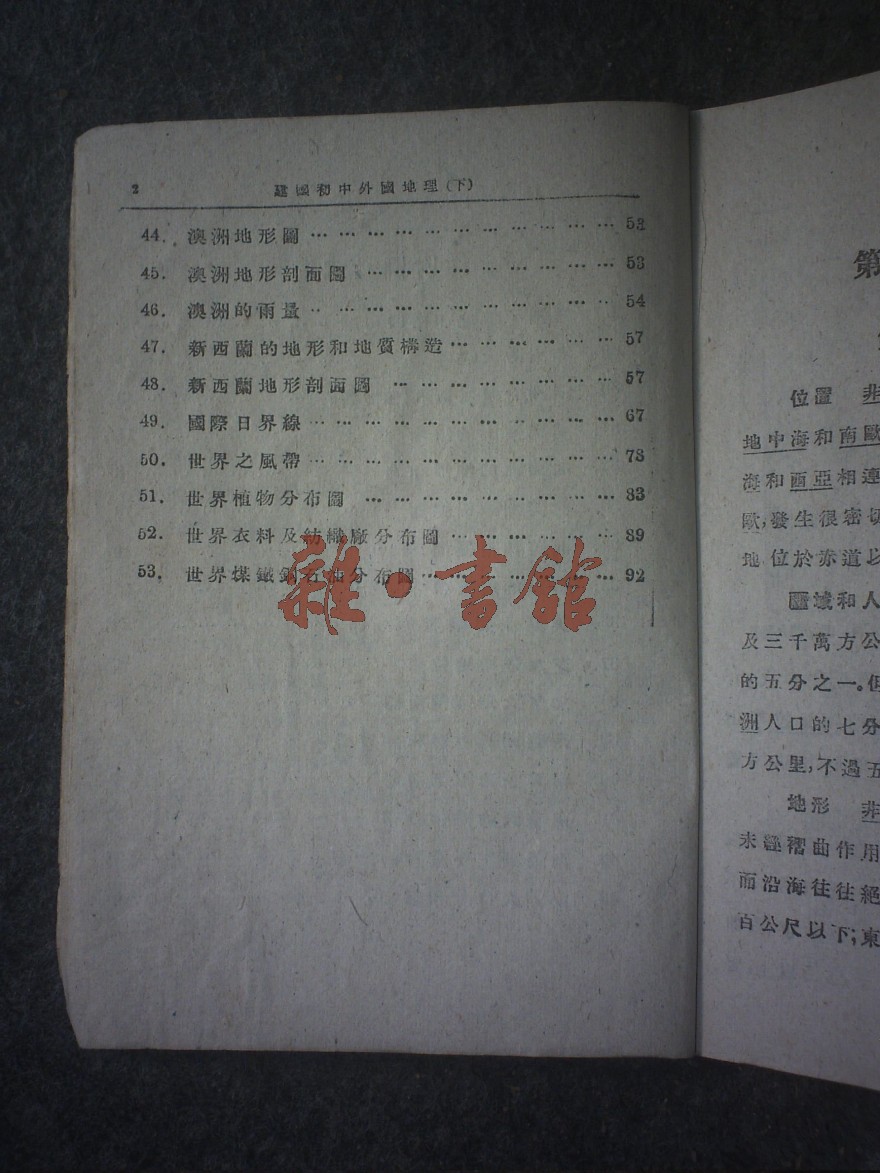 2 建國初中外國地理(下)
44. 澳洲地形圖 … … … … … … … … … … … 52
45. 澳洲地形剖面圖 … … … … … … … … … 53
46. 澳洲的雨量 … … … … … … … … … … … 54
47. 新西蘭的地形和地質構造 … … … … … … 57
48. 新西蘭地形剖面圖 … … … … … … … … 57
49. 國際日界線 … … … … … … … … … … … 67
50. 世界之風帶 … … … … … … … … … … … 78
51. 世界植物分布圖 … … … … … … … … … 83
52. 世界衣料及紡織廠分布圖 … … … … … … 89
53. 世界煤鐵 石油分布圖 … … … … … … … 92
雜·書館
第
位置 非
地中海和南歐
海和西亞相連
歐,發生很密切
地位於赤道以
區域和人
及三千萬方公
的五分之一。但
洲人口的七分
方公里,不過五
地形 非
未經褶曲作用
而沿海往往絕
百公尺以下;東